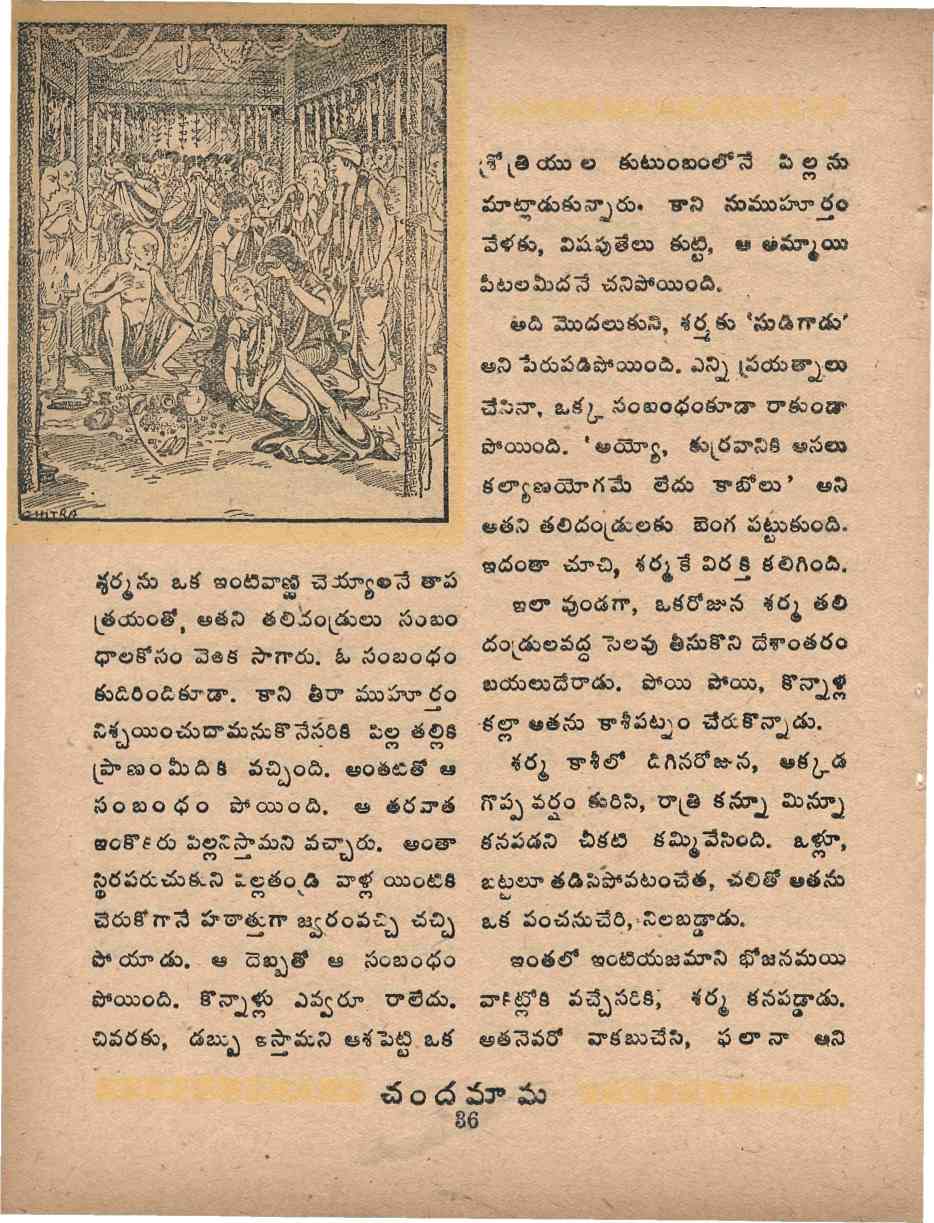 CHITRA
శర్మను ఒక ఇంటివాణ్ణి చెయ్యాలనే తాప
త్రయంతో, అతని తలిదండ్రులు సంబం
ధాలకోసం వెతక సాగారు. ఓ సంబంధం
కుదిరిందికూడా. కాని తీరా ముహూర్తం
నిశ్చయించుదామనుకొనేసరికి పిల్ల తల్లికి
ప్రాణంమీదికి వచ్చింది. అంతటితో ఆ
సంబంధం పోయింది. ఆ తరవాత
ఇంకొకరు పిల్లనిస్తామని వచ్చారు. అంతా
స్థిరపరుచుకుని పిల్లతండ్రి వాళ్ల యింటికి
చేరుకోగానే హఠాత్తుగా జ్వరంవచ్చి చచ్చి
పోయాడు. ఆ దెబ్బతో ఆ సంబంధం
పోయింది. కొన్నాళ్లు ఎవ్వరూ రాలేదు.
చివరకు, డబ్బు ఇస్తామని ఆశపెట్టి ఒక
శ్రోత్రియుల కుటుంబంలోనే పిల్లను
మాట్లాడుకున్నారు. కాని సుముహూర్తం
వేళకు, విషపుతేలు కుట్టి, ఆ అమ్మాయి
పీటలమీదనే చనిపోయింది.
అది మొదలుకుని, శర్మకు 'సుడిగాడు'
అని పేరుపడిపోయింది. ఎన్ని ప్రయత్నాలు
చేసినా, ఒక్క సంబంధంకూడా రాకుండా
పోయింది. 'అయ్యో, కుర్రవానికి అసలు
కల్యాణయోగమే లేదు కాబోలు' అని
అతని తలిదండ్రులకు బెంగ పట్టుకుంది.
ఇదంతా చూచి, శర్మకే విరక్తి కలిగింది.
ఇలా వుండగా, ఒకరోజున శర్మ తలి
దండ్రులవద్ద సెలవు తీసుకొని దేశాంతరం
బయలుదేరాడు. పోయి పోయి, కొన్నాళ్ల
కల్లా అతను కాశీపట్నం చేరుకొన్నాడు.
శర్మ కాశీలో దిగినరోజున, అక్కడ
గొప్ప వర్షం కురిసి, రాత్రి కన్నూ మిన్నూ
కనపడని చీకటి కమ్మివేసింది. ఒళ్లూ,
బట్టలూ తడిసిపోవటంచేత, చలితో అతను
ఒక పంచనుచేరి, నిలబడ్డాడు.
ఇంతలో ఇంటియజమాని భోజనమయి
వాకిట్లోకి వచ్చేసరికి, శర్మ కనపడ్డాడు.
అతనెవరో వాకబుచేసి, ఫలానా అని
చందమామ
36